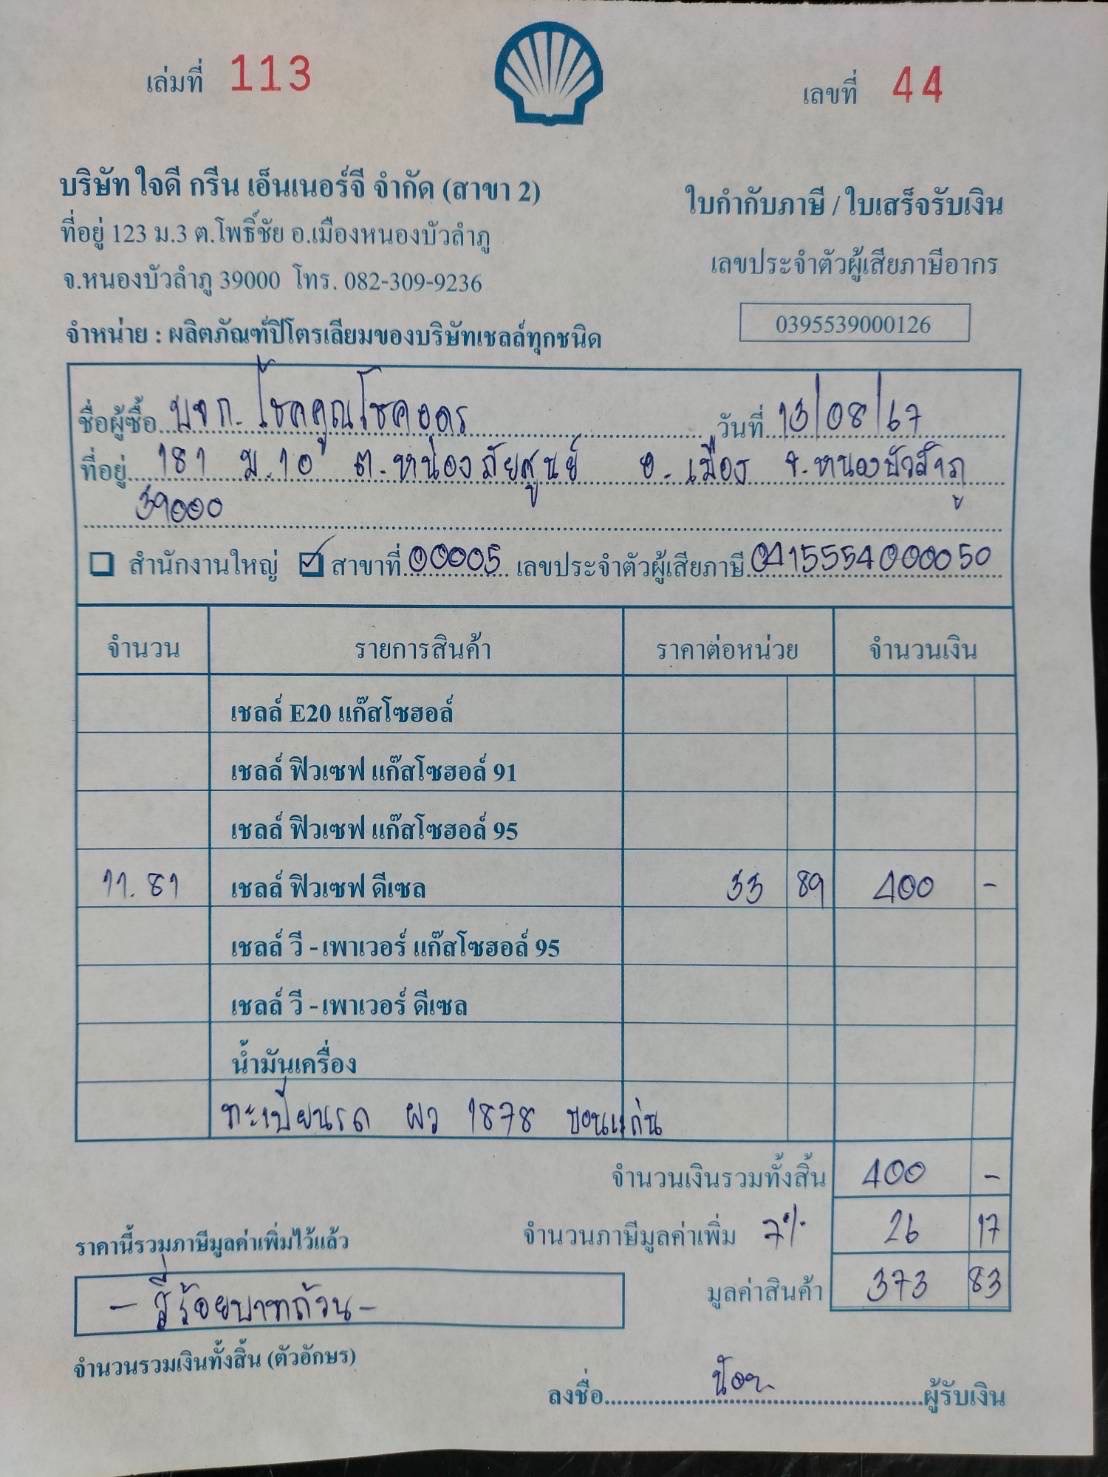 เล่มที่ 113
เลขที่ 44
บริษัท ใจดี กรีน เอ็นเนอร์จี จำกัด (สาขา 2)
ที่อยู่ 123 ม.3 ต.โพธิ์ชัย อ.เมืองหนองบัวลำภู
จ.หนองบัวลำภู 39000 โทร. 082-309-9236
จำหน่าย : ผลิตภัณฑ์ปิโตรเลียมของบริษัทเชลล์ทุกชนิด
ใบกำกับภาษี / ใบเสร็จรับเงิน
เลขประจำตัวผู้เสียภาษีอากร
0395539000126
ชื่อผู้ซื้อ บจก. โชคคูณโชคอุดร วันที่ 13/08/67
ที่อยู่ 181 ม.10 ต.หนองภัยศูนย์ อ.เมือง จ.หนองบัวลำภู
39000
สำนักงานใหญ่ ✓ สาขาที่ 00005 เลขประจำตัวผู้เสียภาษี 0415554000050
จำนวน รายการสินค้า ราคาต่อหน่วย จำนวนเงิน
เชลล์ E20 แก๊สโซฮอล์
เชลล์ ฟิวเซฟ แก๊สโซฮอล์ 91
เชลล์ ฟิวเซฟ แก๊สโซฮอล์ 95
11.81 เชลล์ ฟิวเซฟ ดีเซล 33 89 400 -
เชลล์ วี - เพาเวอร์ แก๊สโซฮอล์ 95
เชลล์ วี - เพาเวอร์ ดีเซล
น้ำมันเครื่อง
ทะเบียนรถ ผว 1878 ขอนแก่น
จำนวนเงินรวมทั้งสิ้น 400 -
จำนวนภาษีมูลค่าเพิ่ม 7% 26 17
มูลค่าสินค้า 373 83
ราคานี้รวมภาษีมูลค่าเพิ่มไว้แล้ว
- สี่ร้อยบาทถ้วน -
จำนวนรวมเงินทั้งสิ้น (ตัวอักษร)
ลงชื่อ ผู้รับเงิน